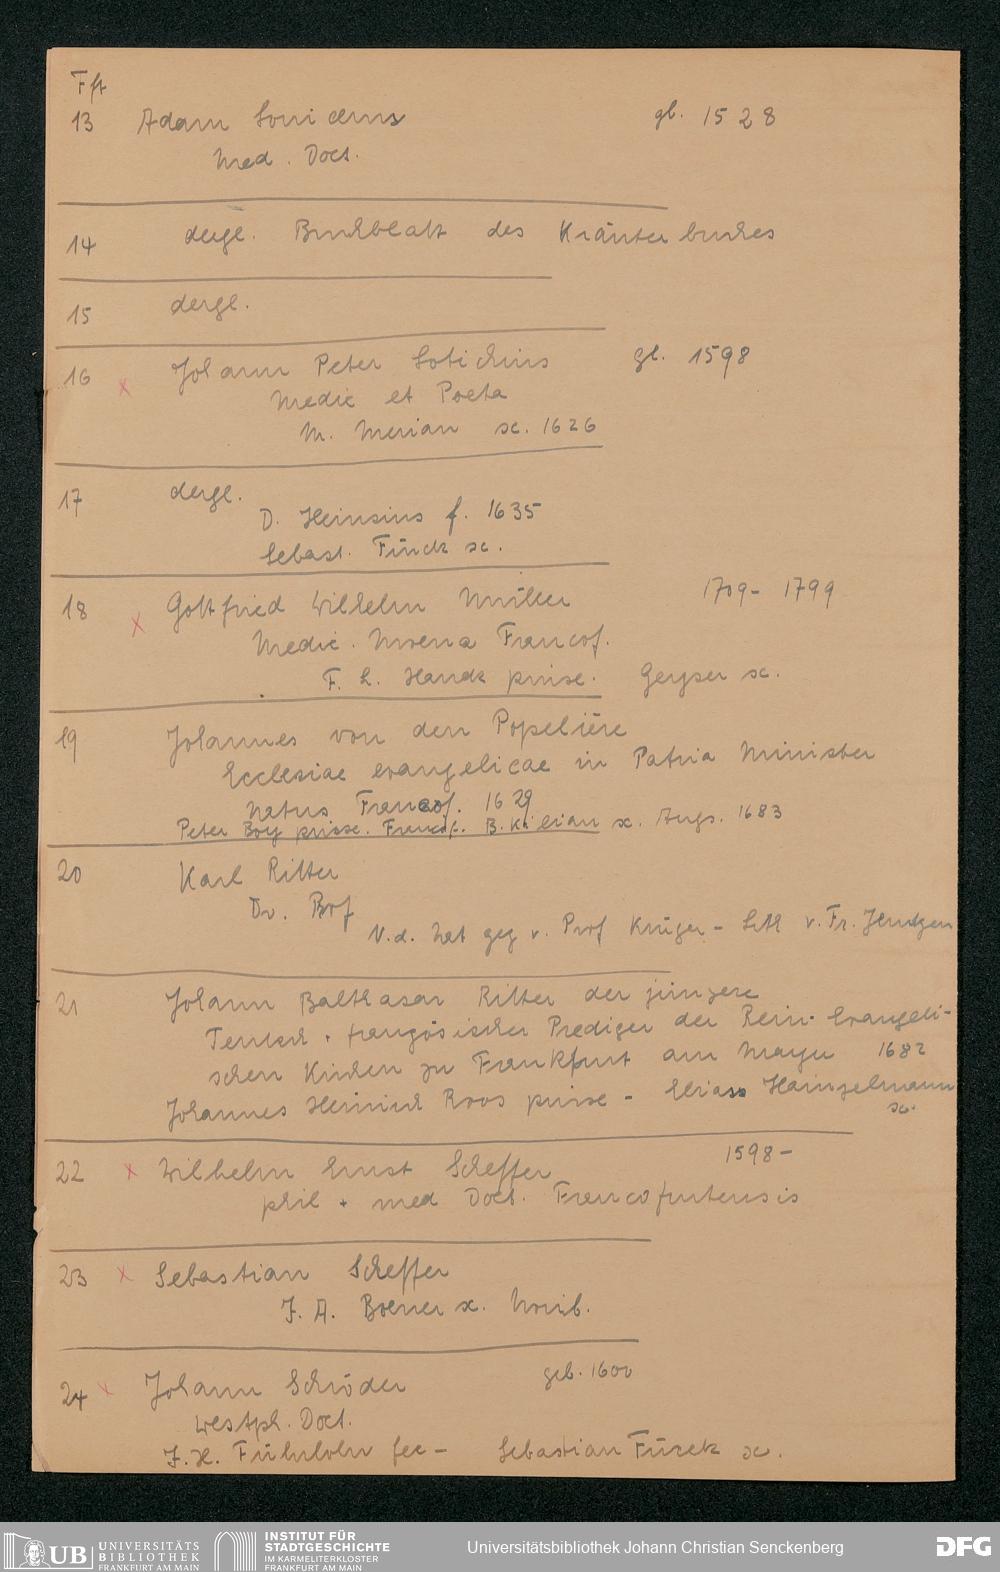 Fft
13 Adam Lonicerus gb. 1528
Med. Doct.
14 dergl. Buchblatt des Kräuterbuches
15 dergl.
16 x Johann Peter Lotichius gb. 1598
Medic et Poeta
M. Merian sc. 1626
17 dergl.
D. Heinsius f. 1635
Sebast. Fürck sc.
18 x Gottfried Wilhelm Müller 1709 - 1799
Medic. Moeno Francof.
F. L. Hauck pinx. Geyser sc.
19 Johannes von den Popelière
Ecclesiae evangelicae in Patria Minister
Natus Francof. 1629
Peter Boy pinxe. Francof. B. Kilian sc. Augs. 1683
20 Karl Ritter
Dr. Prof
N. d. Nat gez v. Prof Krüger - Lith v. Fr. Jentzen
21 Johann Balthasar Ritter der jüngere
Teutsch + französischer Prediger der Rein. Evangeli-
schen Kirchen zu Frankfurt am Mayn 1682
Johannes Heinrich Roos pinxe - Elias Hainzelmann
sc.
22 x Wilhelm Ernst Scheffer 1598 -
phil + med Doct. Francofurtensis
23 x Sebastian Scheffer
J. A. Boener sc. Norib.
24 x Johann Schröder geb. 1600
Westph. Doct.
J. H. fec - Sebastian Fürck sc.
UB UNIVERSITÄTS
BIBLIOTHEK
FRANKFURT AM MAIN
INSTITUT FÜR
STADTGESCHICHTE
IM KARMELITERKLOSTER
FRANKFURT AM MAIN
Universitätsbibliothek Johann Christian Senckenberg
DFG